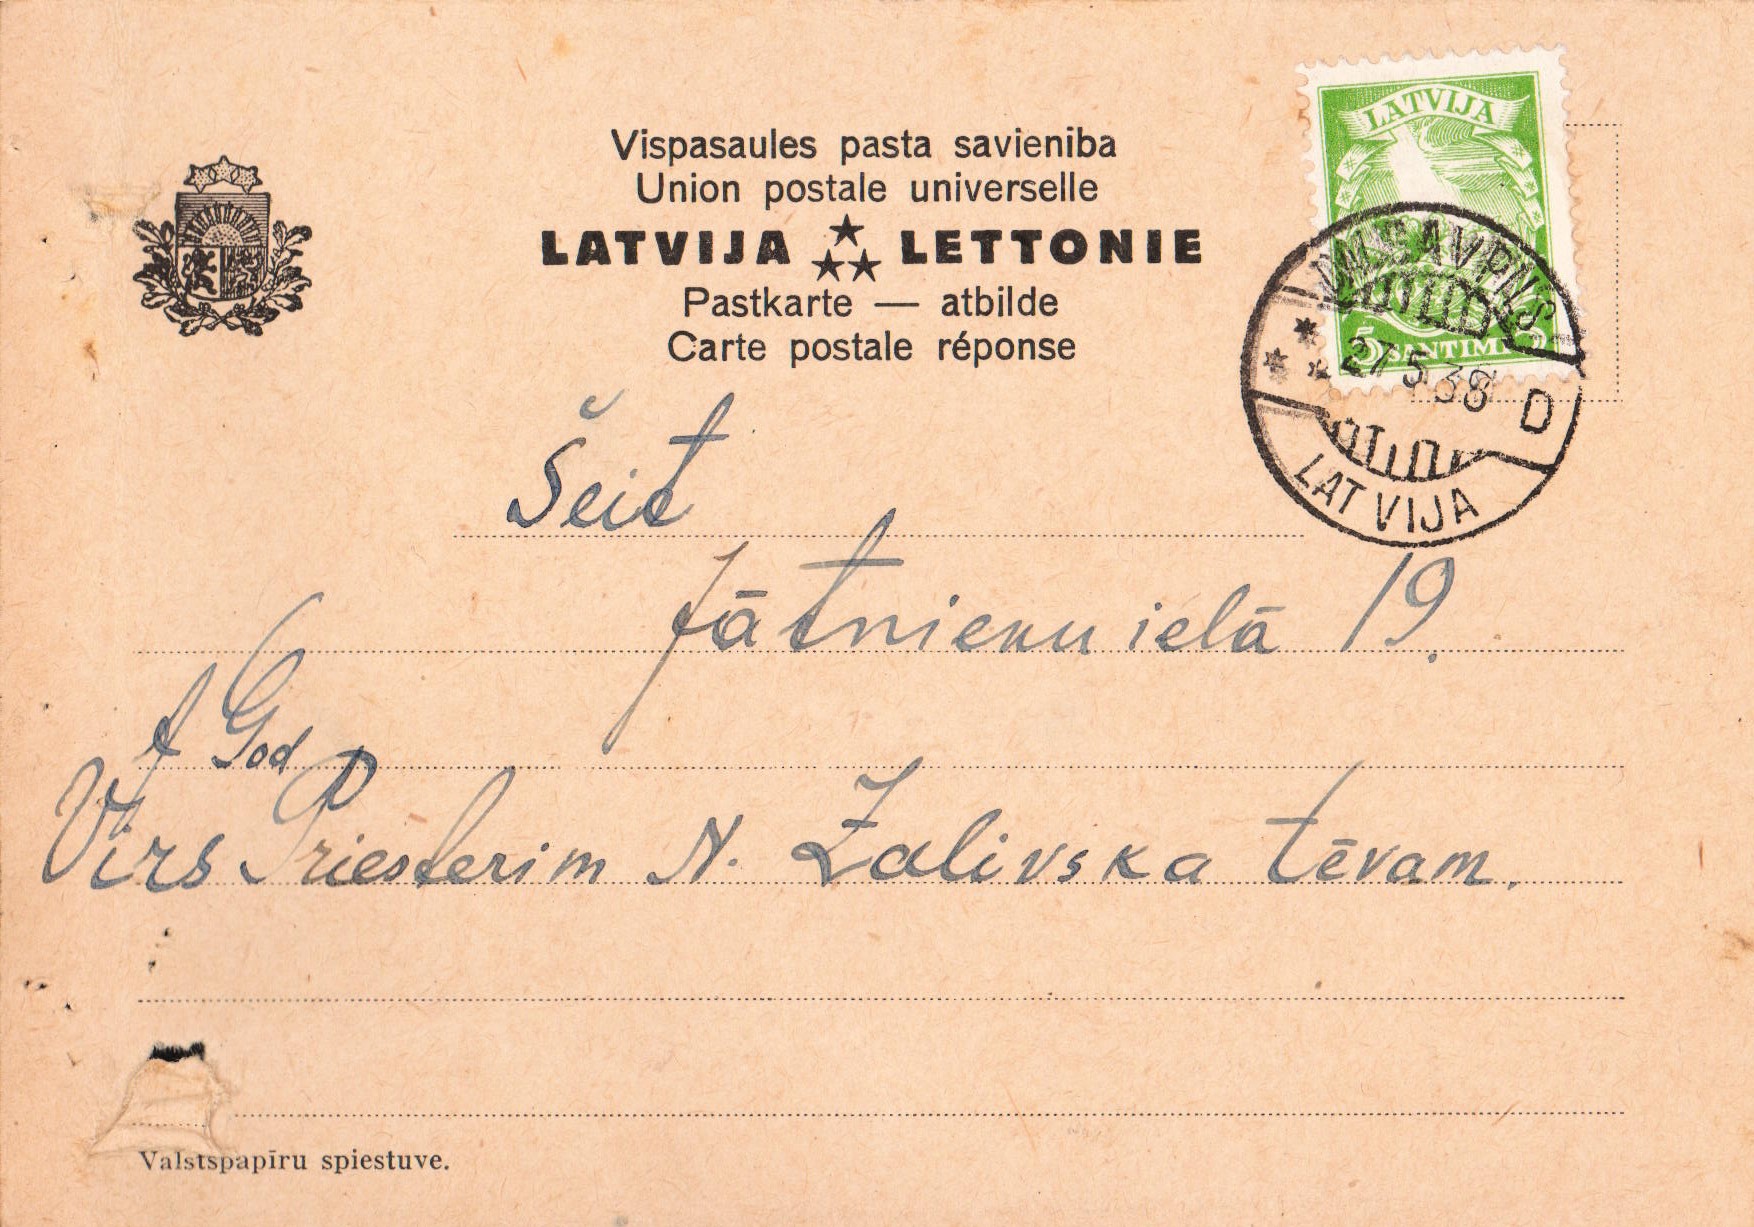 Vispasaules pasta savieniba
Union postale universelle
LATVIJA LETTONIE
Pastkarte — atbilde
Carte postale réponse
LATVIJA
5 SANTIMI 5
DAUGAVPILS
27 5 38 D
LATVIJA
Šeit
Jātnieku ielā 19.
A God
Virs Priesterim N. Zalivska tēvam.
Valstspapīru spiestuve.